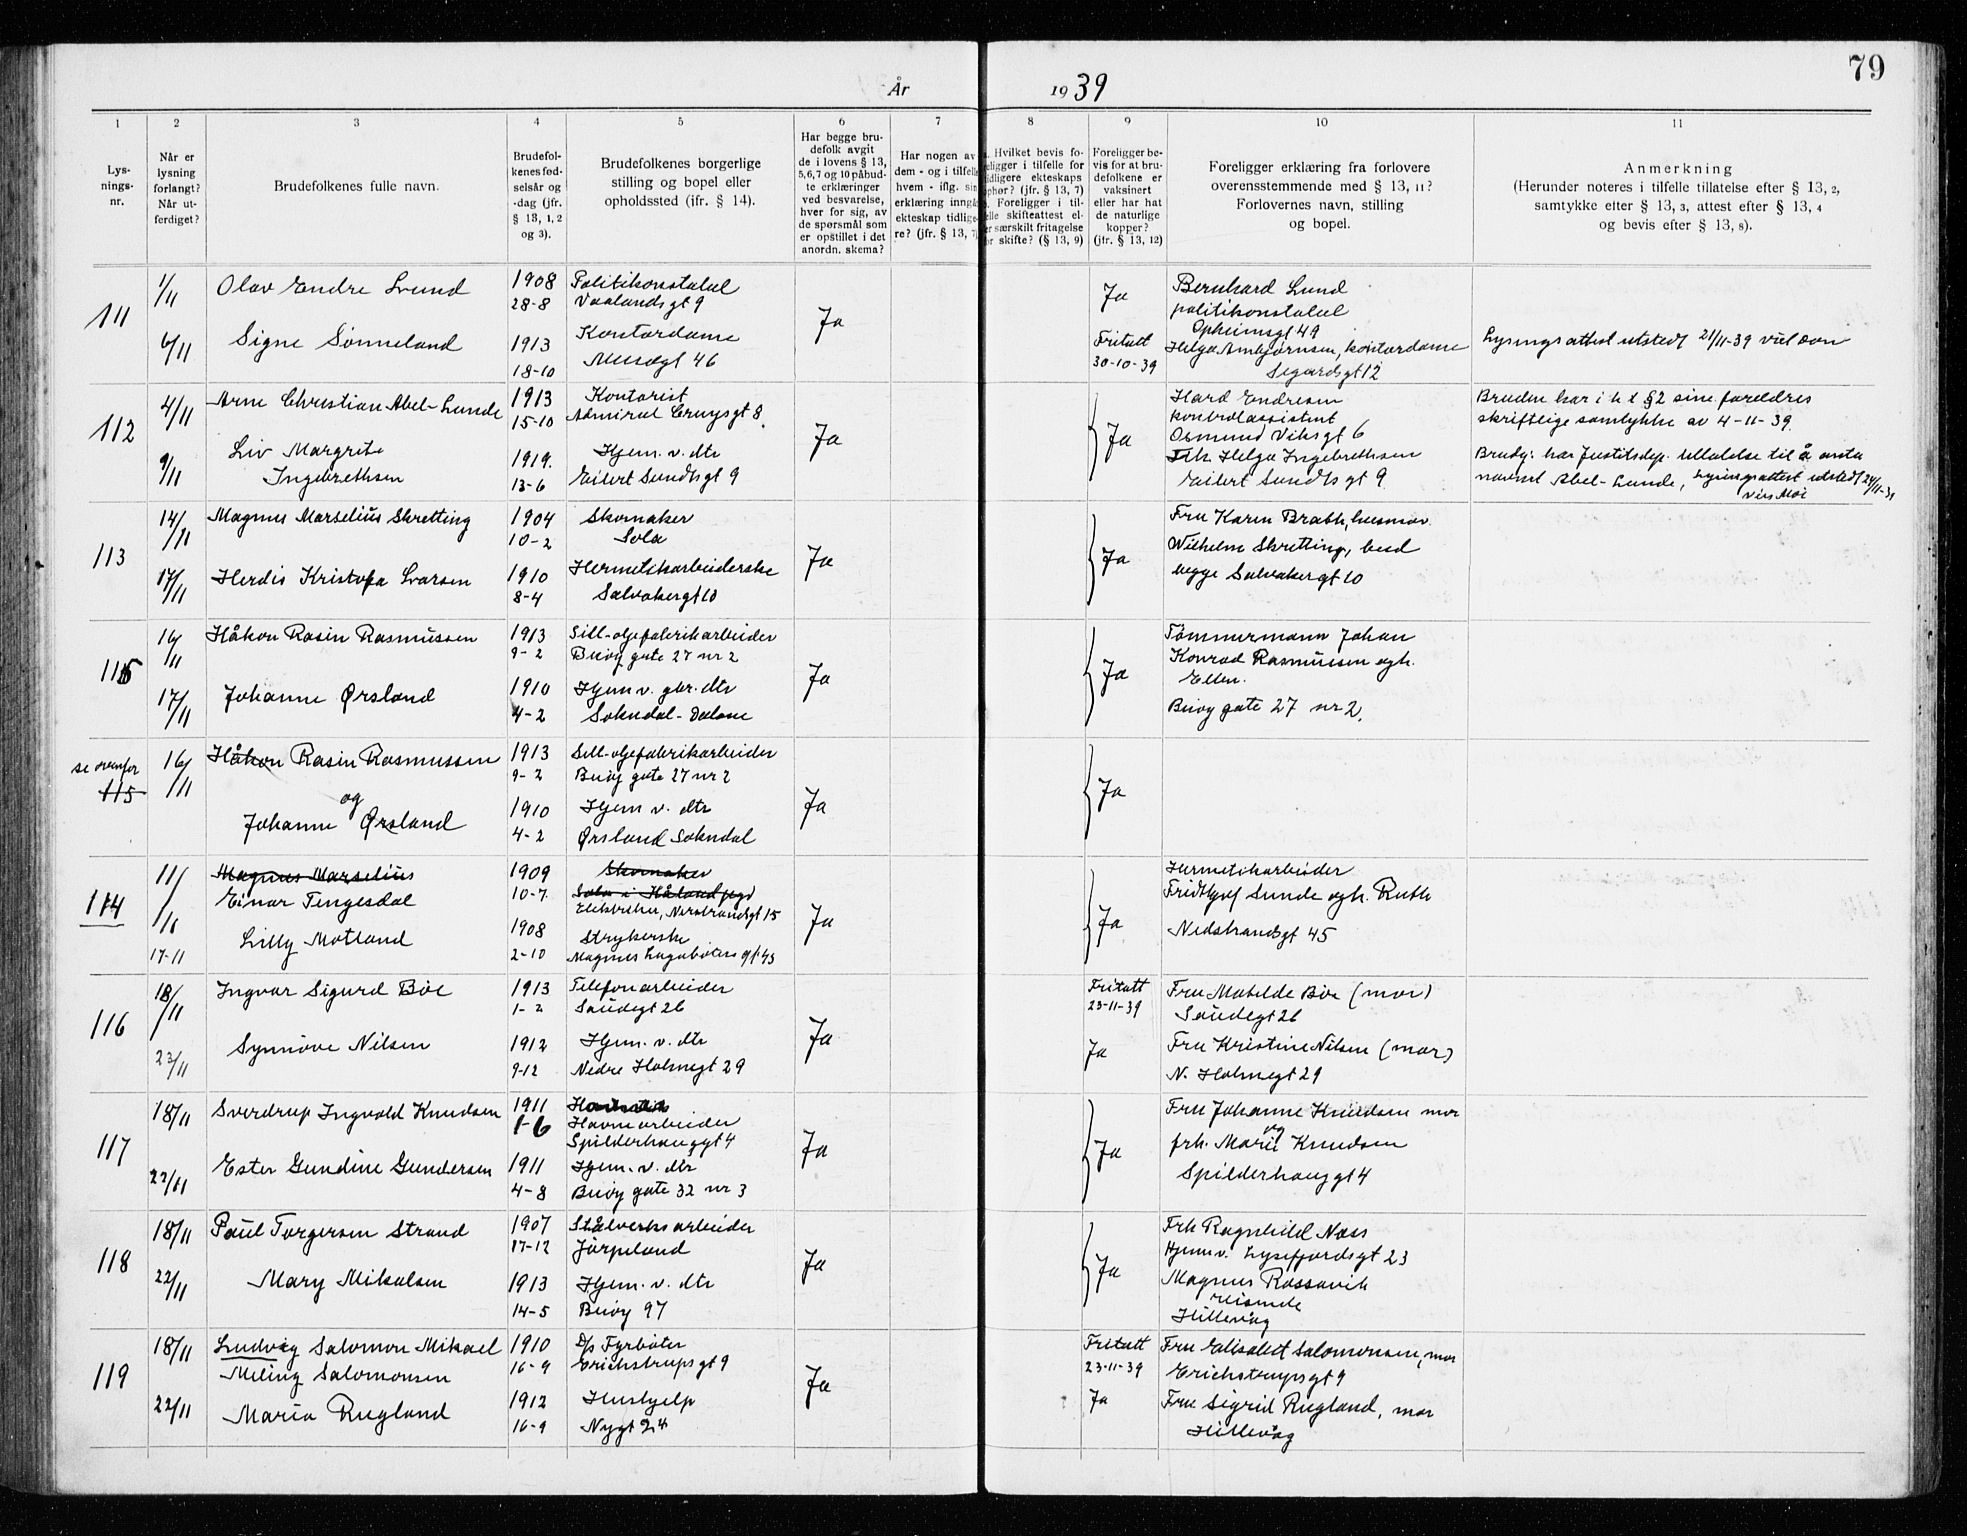 79
År 1939
1 2 3 4 5 6 7 8 9 10 11
Lys-
nings-
nr.
Når er
lysning
forlangt?
Når ut-
ferdiget?
Brudefolkenes fulle navn.
Brudefol-
kenes fød-
selsår og
-dag (jfr.
§ 13, 1, 2
og 3).
Brudefolkenes borgerlige
stilling og bopel eller
opholdssted (ifr. § 14).
Har begge bru-
defolk avgit
de i lovens § 13,
5, 6, 7 og 10 påbud-
te erklæringer
ved besvarelse,
hver for sig, av
de spørsmål som
er opstillet i det
anordn. skema?
Har nogen av
dem - og i tilfelle
hvem - iflg. sin
erklæring inngå
ekteskap tidlige-
re? (jfr. § 13, 7
Hvilket bevis fo-
religger i tilfelle for
tidligere ekteskaps
ophør? (jfr. § 13, 7)
Foreligger i til-
felle skifteattest el-
er særskilt fritagelse
or skifte? (§ 13, 9)
Foreligger be-
vis for at bru-
defolkene er
vaksinert
eller har hat
de naturlige
kopper?
(jfr. § 13, 12)
Foreligger erklæring fra forlovere
overensstemmende med § 13, 11?
Forlovernes navn, stilling
og bopel.
Anmerkning
(Herunder noteres i tilfelle tillatelse efter § 13, 2,
samtykke efter § 13, 3, attest efter § 13, 4
og bevis efter § 13, 8).
111
1/11
6/11
Olav Endre Lund
Signe Sønneland
1908
28-8
1913
18-10
Politikonstabel
Vaalandsgt 9
Kontordame
Musegt 46
Ja
Ja
Fritatt
30-10-39
Bernhard Lund
politikonstabel
Opheimsgt 49
Helga Ambjørnsen, kontordame
Sigurdsgt 12
Lysingsattest utstedt 21/11-39
112
4/11
9/11
Arne Christian Abel-Lunde
Liv Margrete
Ingebrethsen
1913
15-10
1919.
13-6
Kontorist
Admiral Cruysgt 8.
Hjem. v. dtr
Eilert Sundtsgt 9
Ja
Ja
Hard Endresen
kontrolassistent
Osmund Viksgt 6
Frk Helga Ingebrethsen
Eilert Sundtsgt 9
Bruden har i h t §2 sine foreldres
skriftlige samtykke av 4-11-39.
Brudg. har Justitsdep. tillatelse til å anta
navnet Abel-Lunde, Lysingsattest utstedt 24/11-39
113
14/11
17/11
Magnus Marselius Skretting
Herdis Kristofa Larsen
1904
10-2
1910
8-4
Skomaker
Sola
Hermetikarbeiderske
Solvakergt 10
Ja
Ja
Fru Karen Bratli, husmor
Wilhelm Skretting, bud
begge Solvakergt 10
115
16/11
17/11
Håkon Rasin Rasmussen
Johanne Ørsland
1913
9-2
1910
4-2
Sild-oljefabrikarbeider
Buøy gate 27 nr 2
Hjem v. gbr. dtr
Sokndal - Dalane
Ja
Ja
Tømmermann Johan
Konrad Rasmussen ogh.
Ellen.
Buøy gate 27 nr 2.
se ovenfor
115
16/11
Håkon Rasin Rasmussen
og
Johanne Ørsland
1913
9-2
1910
4-2
Sild-oljefabrikarbeider
Buøy gate 27 nr 2
Hjem v. dtr
Ørsland Sokndal
Ja
Ja
114
11/11
17-11
Magnus Marselius
Einar Tengesdal
Lilly Motland
1909
10-7.
1908
2-10
Skomaker
Sola i Håland pgd
Elektriker, Nedstrandsgt 15
Strykerske
Magnus Lagabøters gt 43
Ja
Ja
Hermetikarbeider
Fridthjof Sunde ogh. Ruth
Nedstrandsgt 45
116
18/11
23/11
Ingvar Sigurd Bøe
Synnøve Nilsen
1913
1-2
1912
9-12
Telefonarbeider
Saudegt 26
Hjem. v. dtr
Nedre Holmegt 29
Ja
Fritatt
23-11-39
Ja
Fru Matilde Bøe (mor)
Saudegt 26
Fru Kristine Nilsen (mor)
N. Holmegt 29
117
18/11
22/11
Sverdrup Ingvald Knudsen
Ester Gundine Gundersen
1911
1-6
1911
4-8
Havnearbeider
Spilderhauggt 4
Hjem. v. dtr
Buøy gate 32 nr 3
Ja
Ja
Fru Johanne Knudsen mor
og
frk. Marie Knudsen
Spilderhauggt 4
118
18/11
22/11
Paul Torgersen Strand
Mary Mikalsen
1907
17-12
1913
14-5
Stålverksarbeider
Jørpeland
Hjem. v. dtr
Buøy 97
Ja
Ja
Frk Ragnhild Næss
Hjemv. Lysefjordsgt 23
Magnus Rossavik
reisende
Hillevåg
119
18/11
22/11
Ludvig Salomon Mikael
Meling Salomonsen
Maria Rugland
1910
16-9
1912
16-9
D/s Fyrbøter
Erichstrupsgt 9
Hushjelp
Nygt 24
Ja
Fritatt
23-11-39
Ja
Fru Elisabet Salomonsen, mor
Erichstrupsgt 9
Fru Sigrid Rugland, mor
Hillevåg